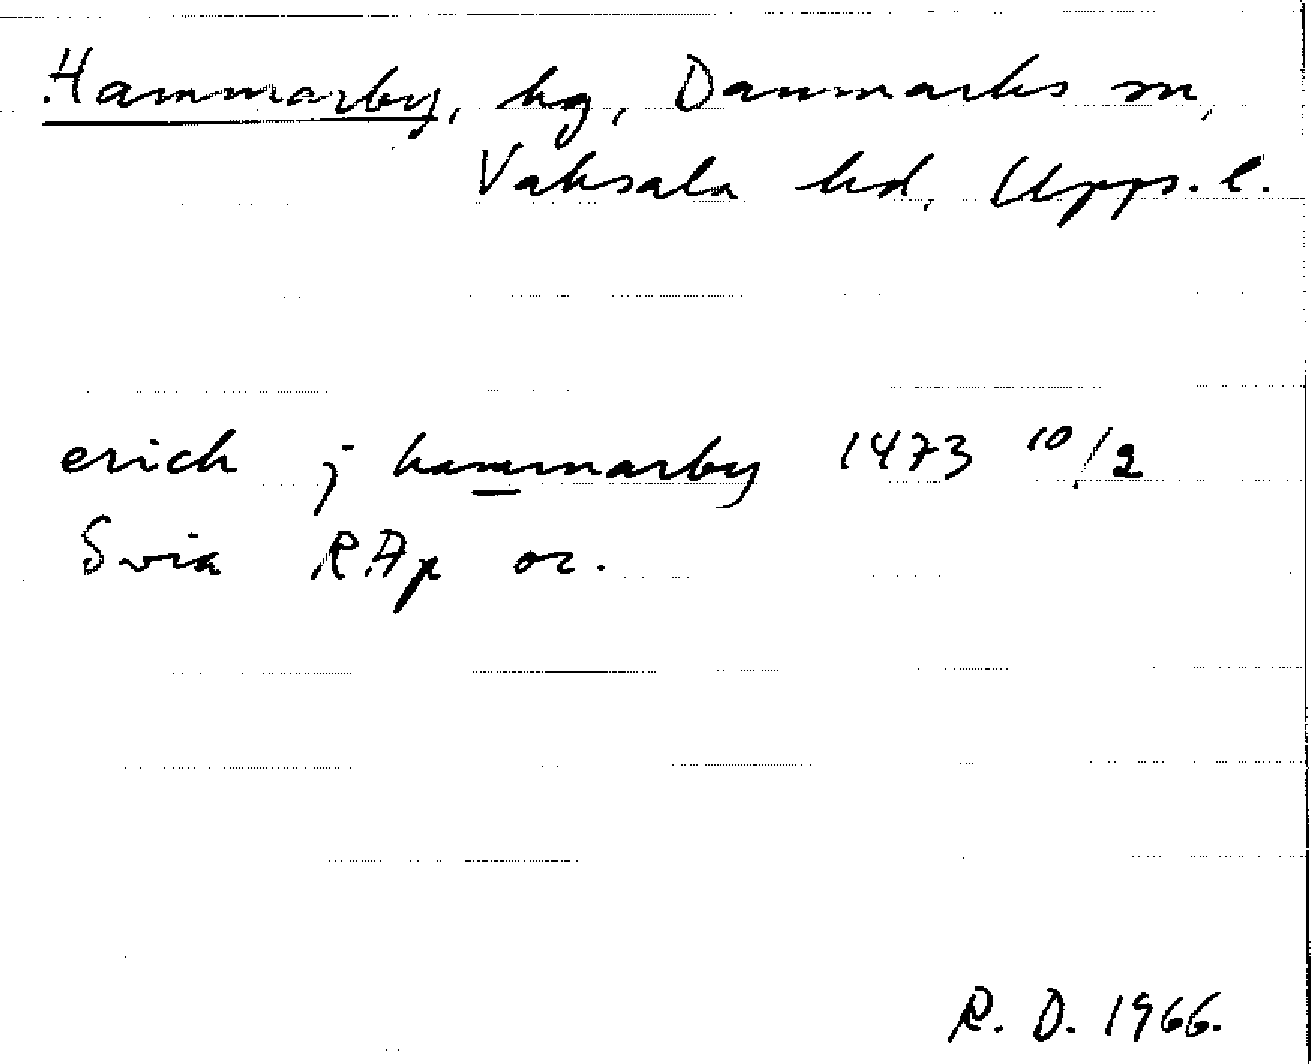 Hammarby, hg, Danmarks sn,
Vaksala hd, Upps. l.
erich j hammarby 1473 10/2
Svia RAp or.
R. D. 1966.